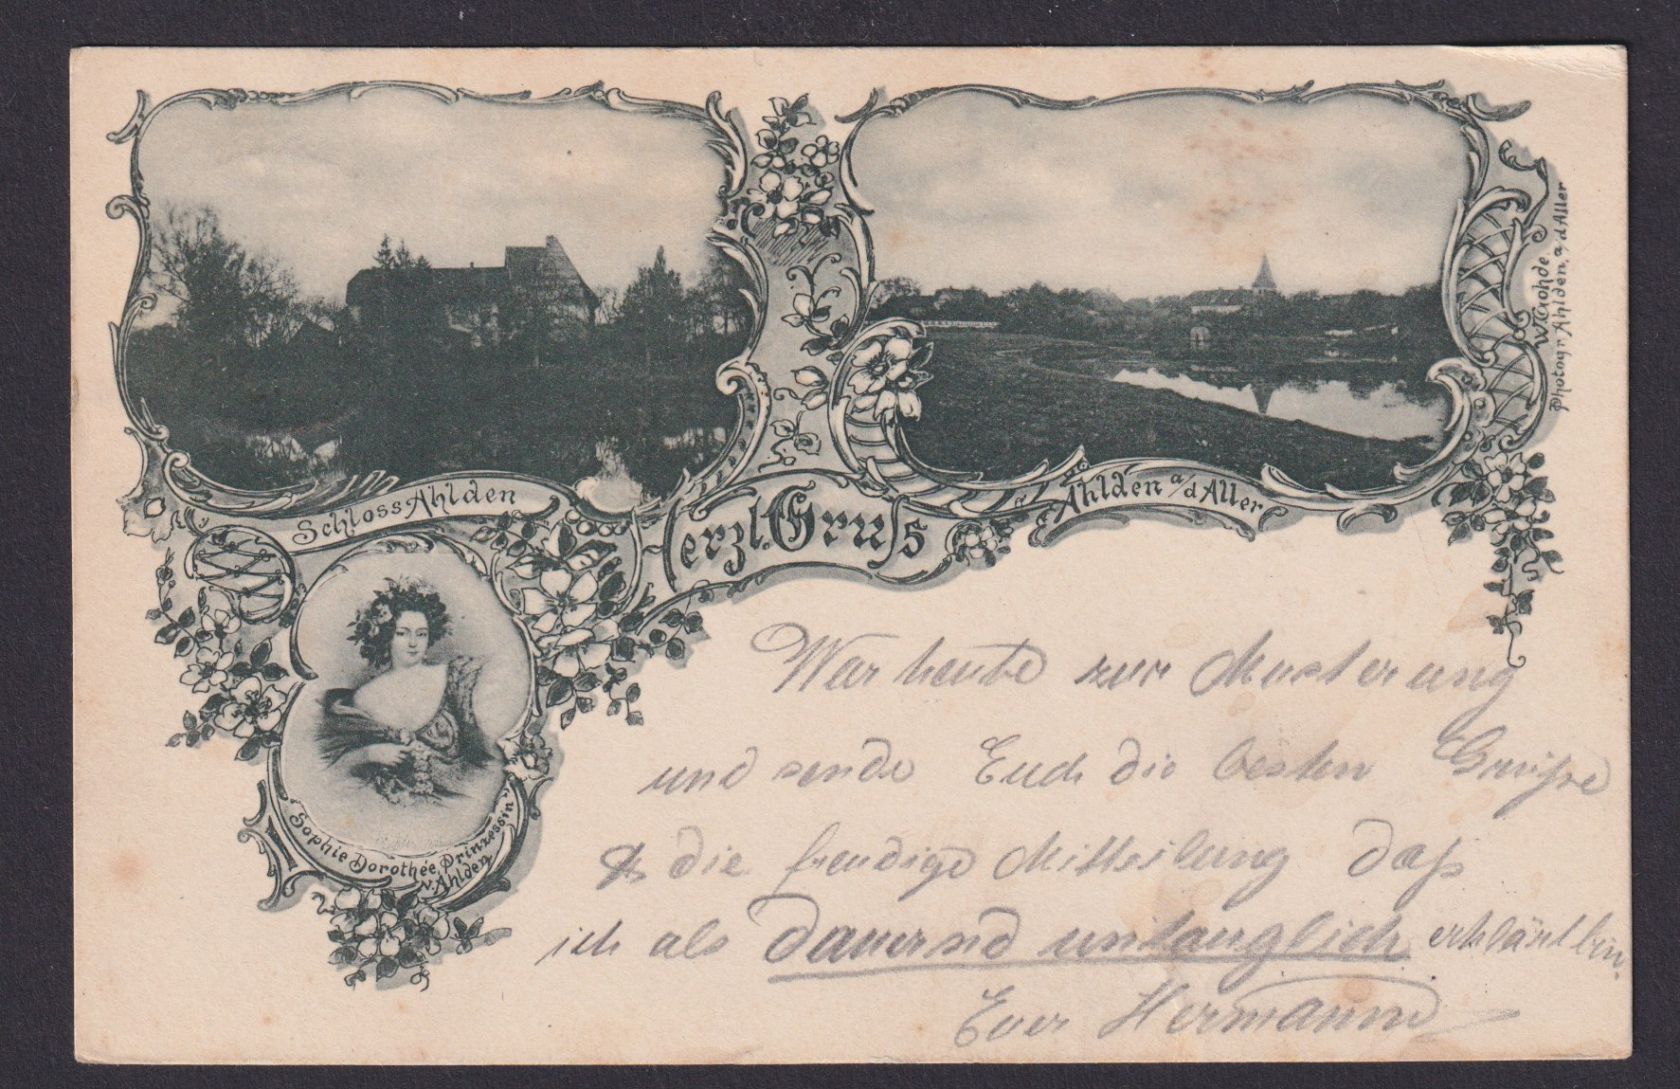 Schloss Ahlden
Herzl. Gruss
Ahlden a/d Aller
W. Grohde
Photogr. Ahlden, a, d Aller
Sophie Dorothée, Prinzessin
v. Ahlden
War heute zur Musterung
und sende Euch die besten Grüsse
& die freudige Mitteilung daß
ich als dauernd untauglich erklärt bin.
Euer Hermann